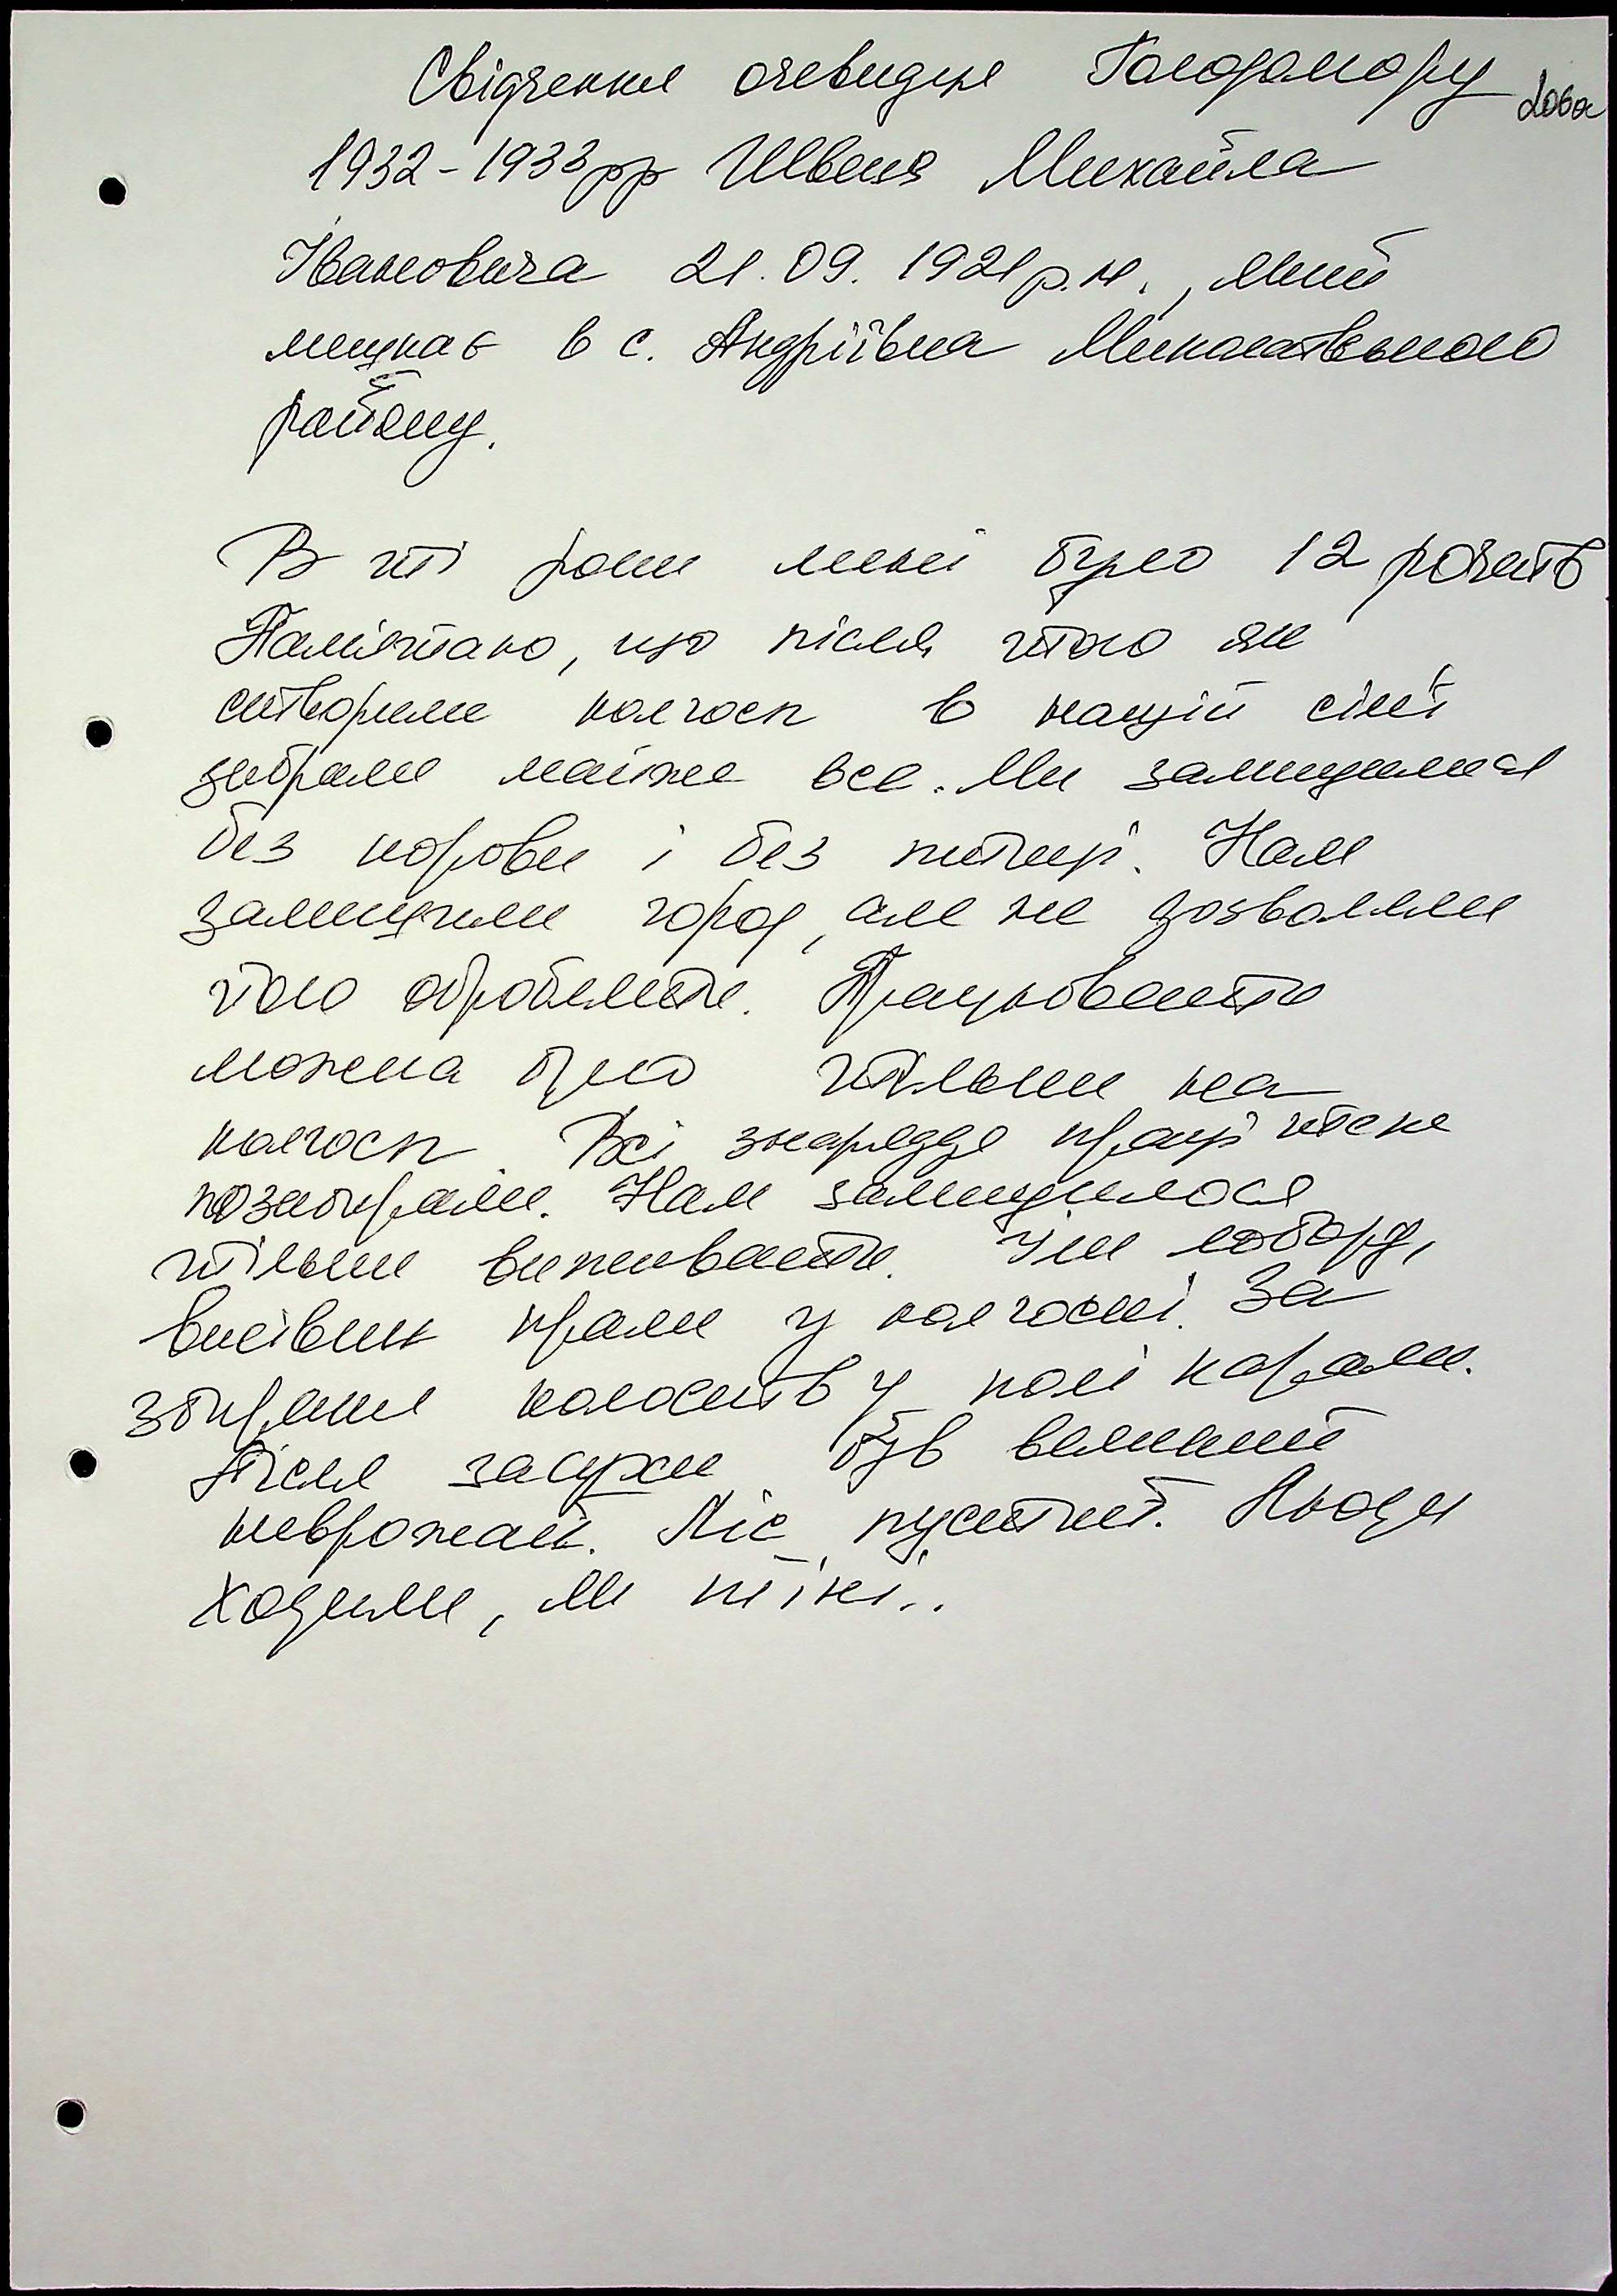 Свідчення очевидця Голодомору
1932-1933рр Швеця Михайла
Івановича 21.09.1921р.н., який
мешкає в с. Андріївка Миколаївського
району.
В ті роки мені було 12 років
Пам'ятаю, що після того як
створили колгосп в нашій сім'ї
забрали майже все. Ми залишилися
без корови і без птиці. Нам
залишили город, але не дозволяли
його обробляти. Працювати
можна було тільки на
колгосп. Всі знаряддя праці теж
позабирали. Нам залишилося
тільки виживати. Їли лободу,
висівки крали у колгоспі. За
збирання колосків у полі карали.
Після засухи був великий
неврожай. Ліс пустий. Люди
ходили, як тіні..